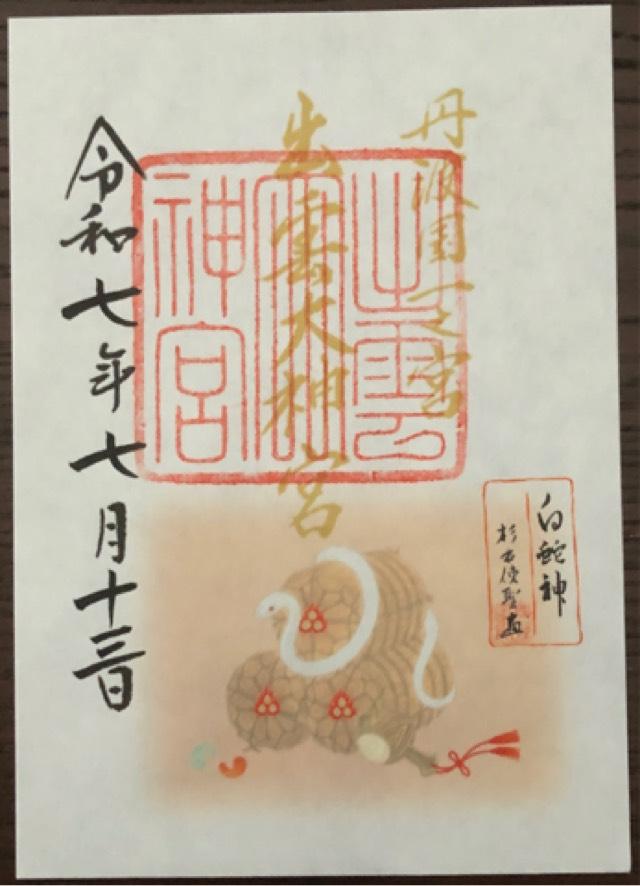 丹波國一之宮
出雲大神宮
出雲大神宮
令和七年七月十三日
白蛇神